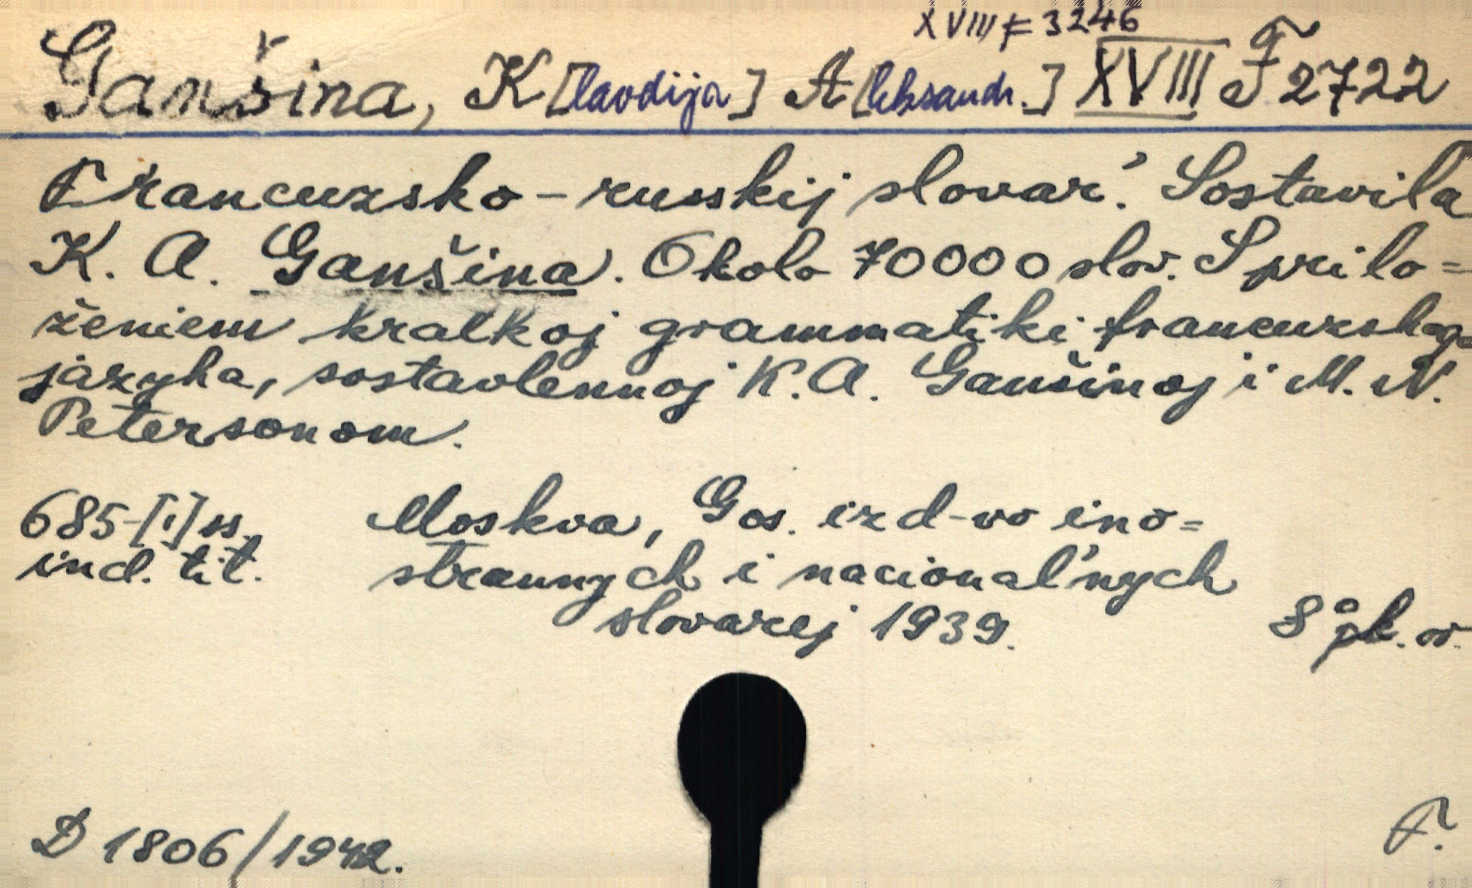 XVIII F 3246
Ganšina, K[lavdija] A[leksandr.] XVIII F 2722
Francuzsko-russkij slovar'. Sostavila
K. A. Ganšina. Okolo 70000 slov. S prilo=
ženiem kratkoj grammatiki francuzskogo
jazyka, sostavlennoj K. A. Ganšinoj i M. N.
Petersonom.
685-[1] ss. Moskva, Gos. izd-vo ino=
ind. tit. strannych i nacional'nych
slovarej 1939. 8° pk. ov.
D 1806/1942. F.